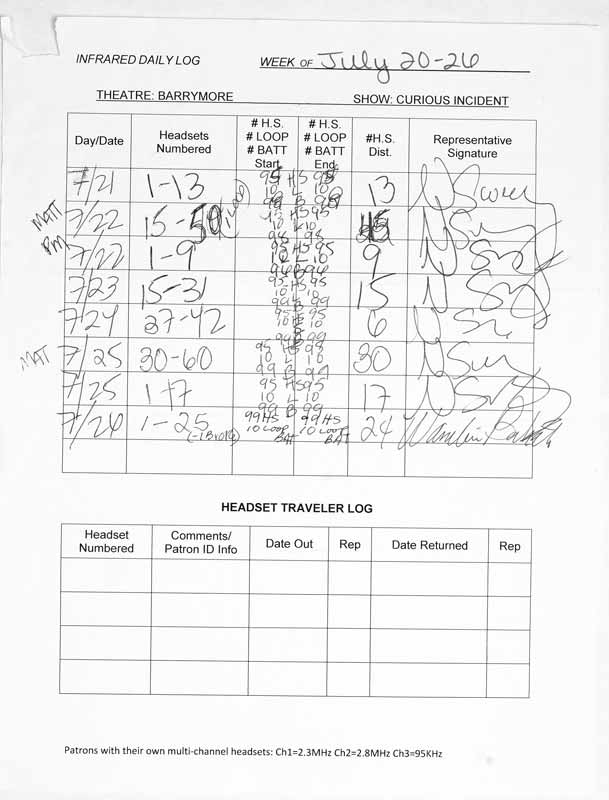 INFRARED DAILY LOG WEEK OF July 20-26
THEATRE: BARRYMORE SHOW: CURIOUS INCIDENT
Day/Date
Headsets Numbered
# H.S. # LOOP # BATT Start
# H.S. # LOOP # BATT End
#H.S. Dist.
Representative Signature
7/21 1-13 95 HS 95 13
10 L 10
MATT 7/22 15-59
10 L 10
PM 7/22 1-9 95 HS 95 9
10 L 10
94 B 94
7/23 15-31 95 HS 95 15
10 L 10
99 B 99
7/24 27-42 95 HS 95 6
10 10
MAT 7/25 30-60 95 HS 95 30
10 L 10
99 B 99
7/25 1-17 95 HS 95 17
10 L 10
99 B 99
7/26 1-25 99 HS 99 HS 24
10 LOOP 10 LOOP
BAT BAT
HEADSET TRAVELER LOG
Headset Numbered
Comments/ Patron ID Info
Date Out
Rep
Date Returned
Rep
Patrons with their own multi-channel headsets: Ch1=2.3MHz Ch2=2.8MHz Ch3=95KHz